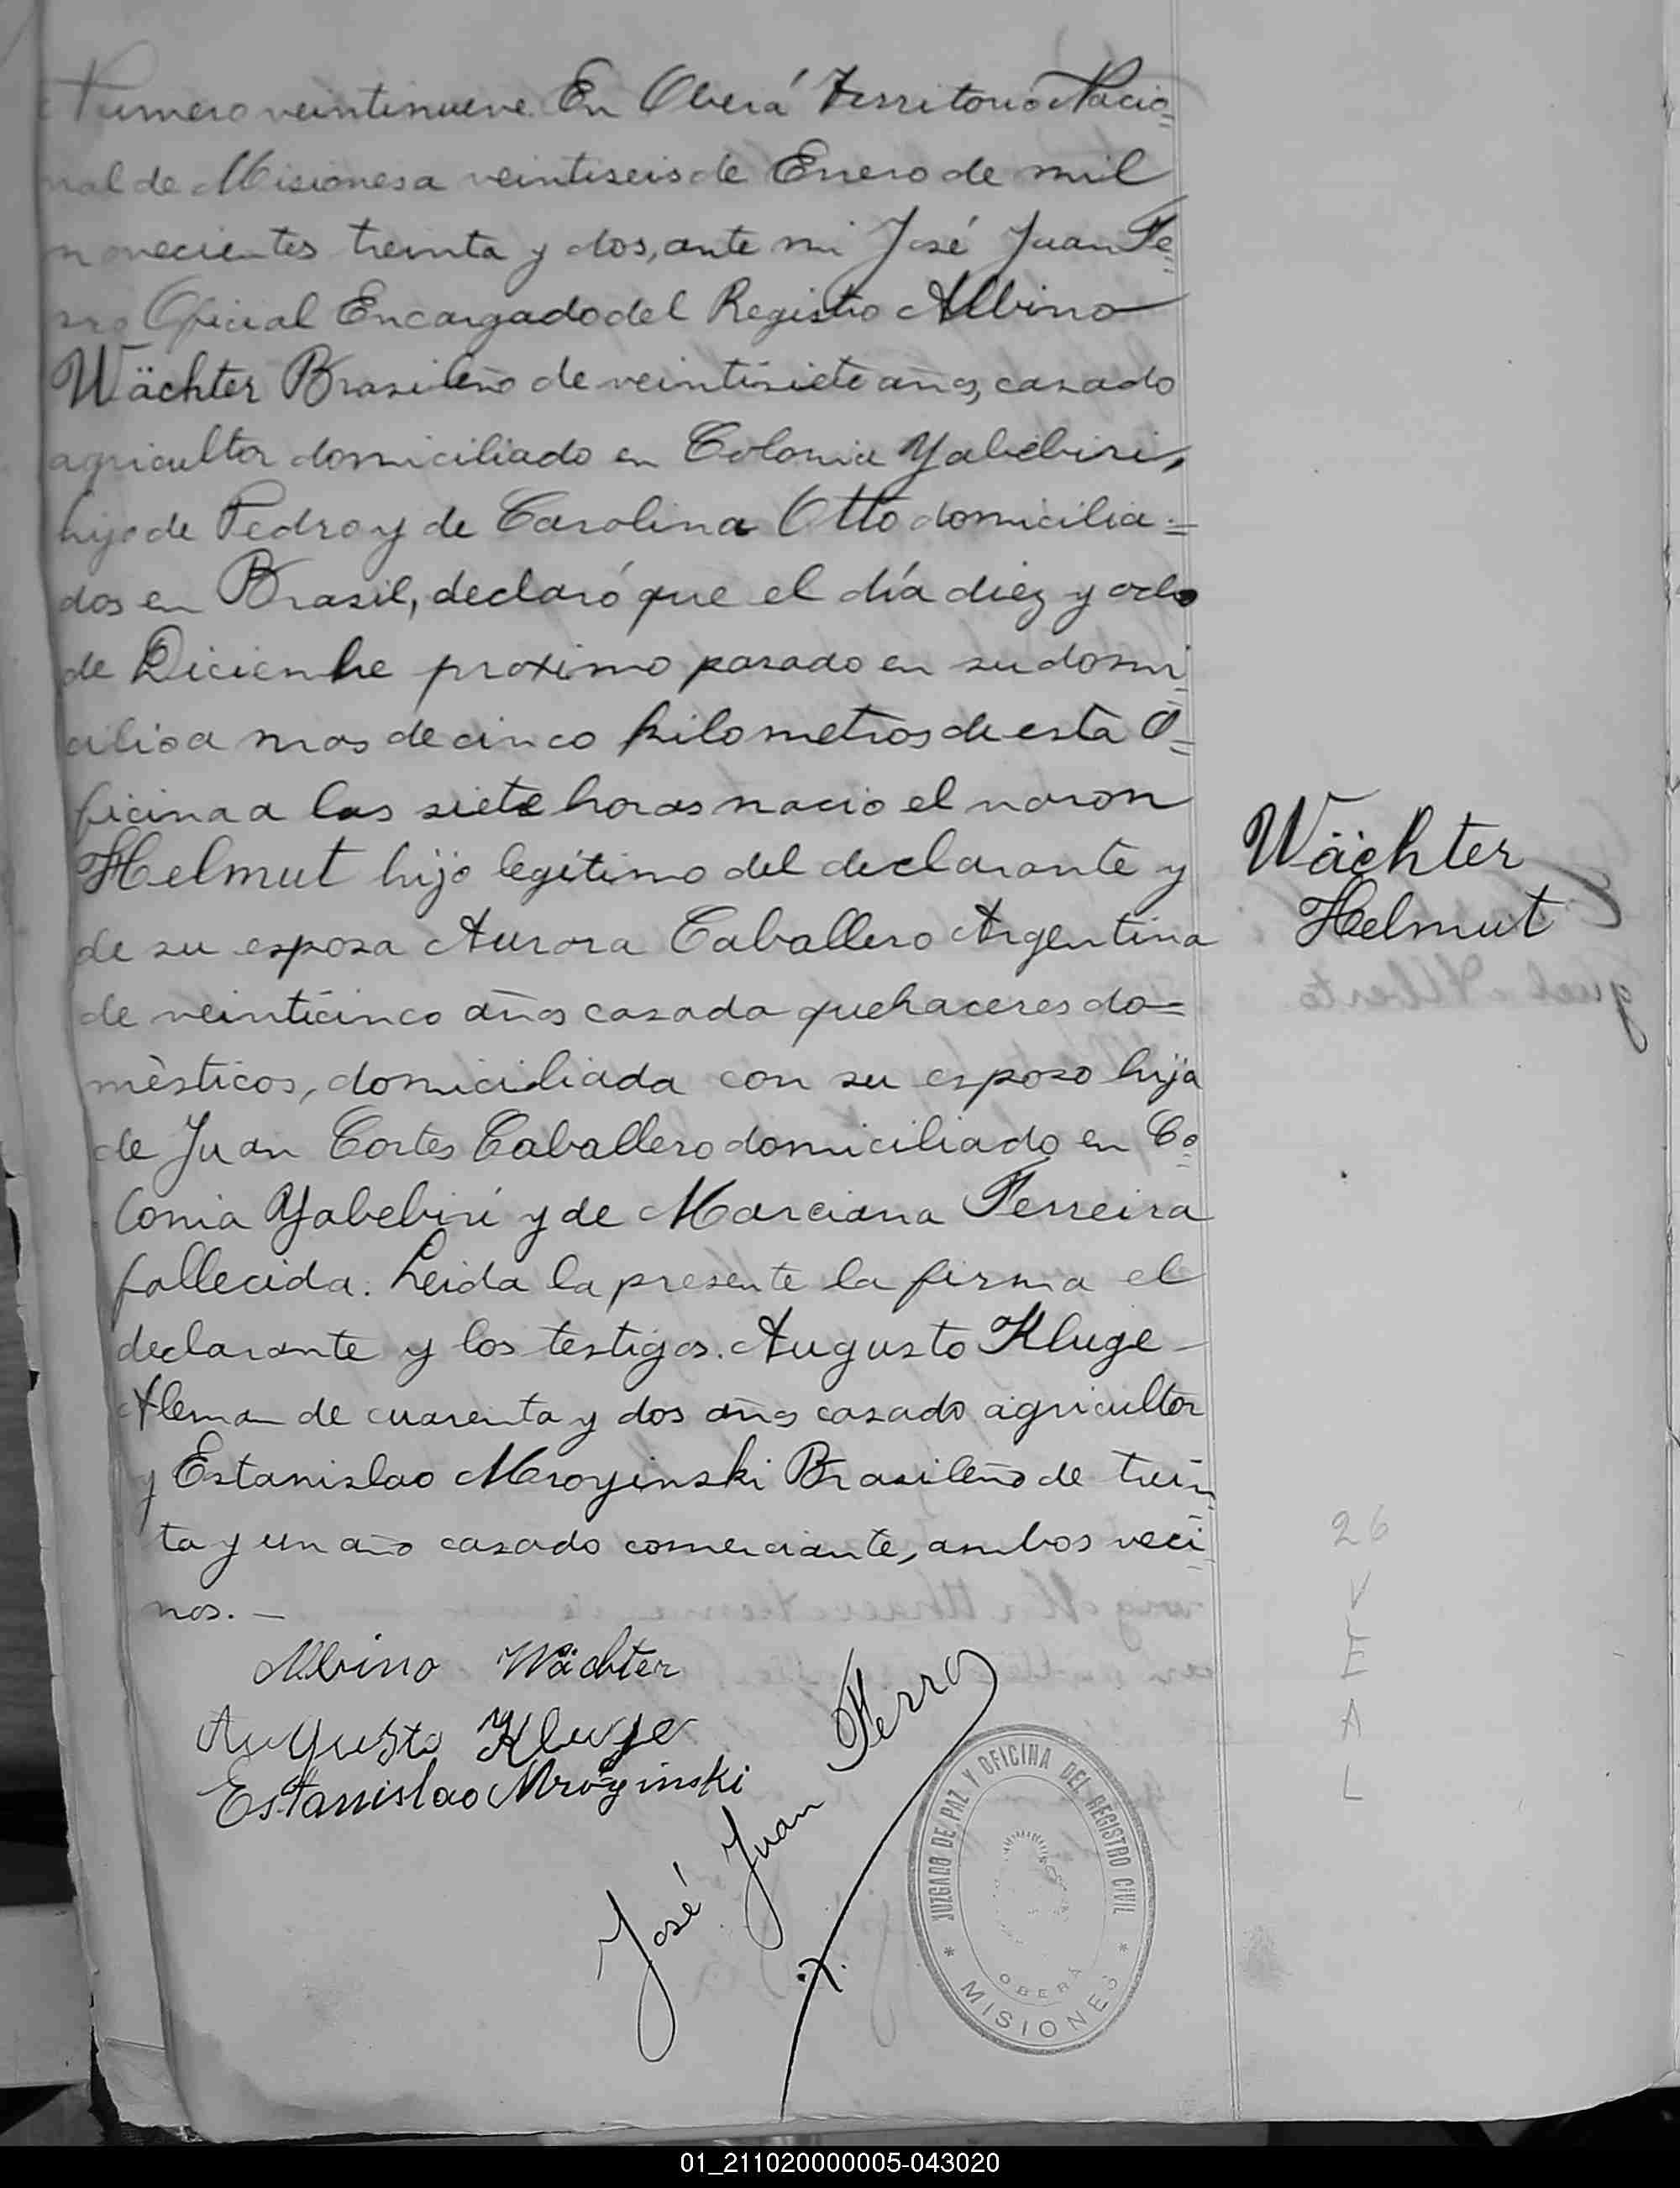 Numero veintinueve. En Oberá Territorio Nacio=
nal de Misiones a veintiseis de Enero de mil
novecientos treinta y dos, ante mi José Juan Fe=
rro Oficial Encargado del Registro Albino
Wächter Brasileño de veintisiete años, casado
agricultor domiciliado en Colonia Yabebiri,
hijo de Pedro y de Carolina Otto domicilia=
dos en Brasil, declaró que el día diez y ocho
de Diciembre proximo pasado en su domi=
cilio a mas de cinco kilometros de esta O=
ficina a las siete horas nacio el varon
Helmut hijo legitimo del declarante y
de su esposa Aurora Caballero Argentina
de veinticinco años casada quehaceres do=
mèsticos, domiciliada con su esposo hija
de Juan Cortes Caballero domiciliado en Co=
lonia Yabebiri y de Marciana Ferreira
fallecida. Leida la presente la firma el
declarante y los testigos. Augusto Kluge
Aleman de cuarenta y dos años casado agricultor
y Estanislao Mroyinski Brasileño de trein=
ta y un año casado comerciante, ambos veci=
nos. —
Wächter
Helmut
Albino Wächter
Augusto Kluge
Estanislao Mroyinski
José Juan Ferro
JUZGADO DE PAZ Y OFICINA DEL REGISTRO CIVIL
OBERÁ
* MISIONES *
26
V
E
A
L
01_211020000005-043020